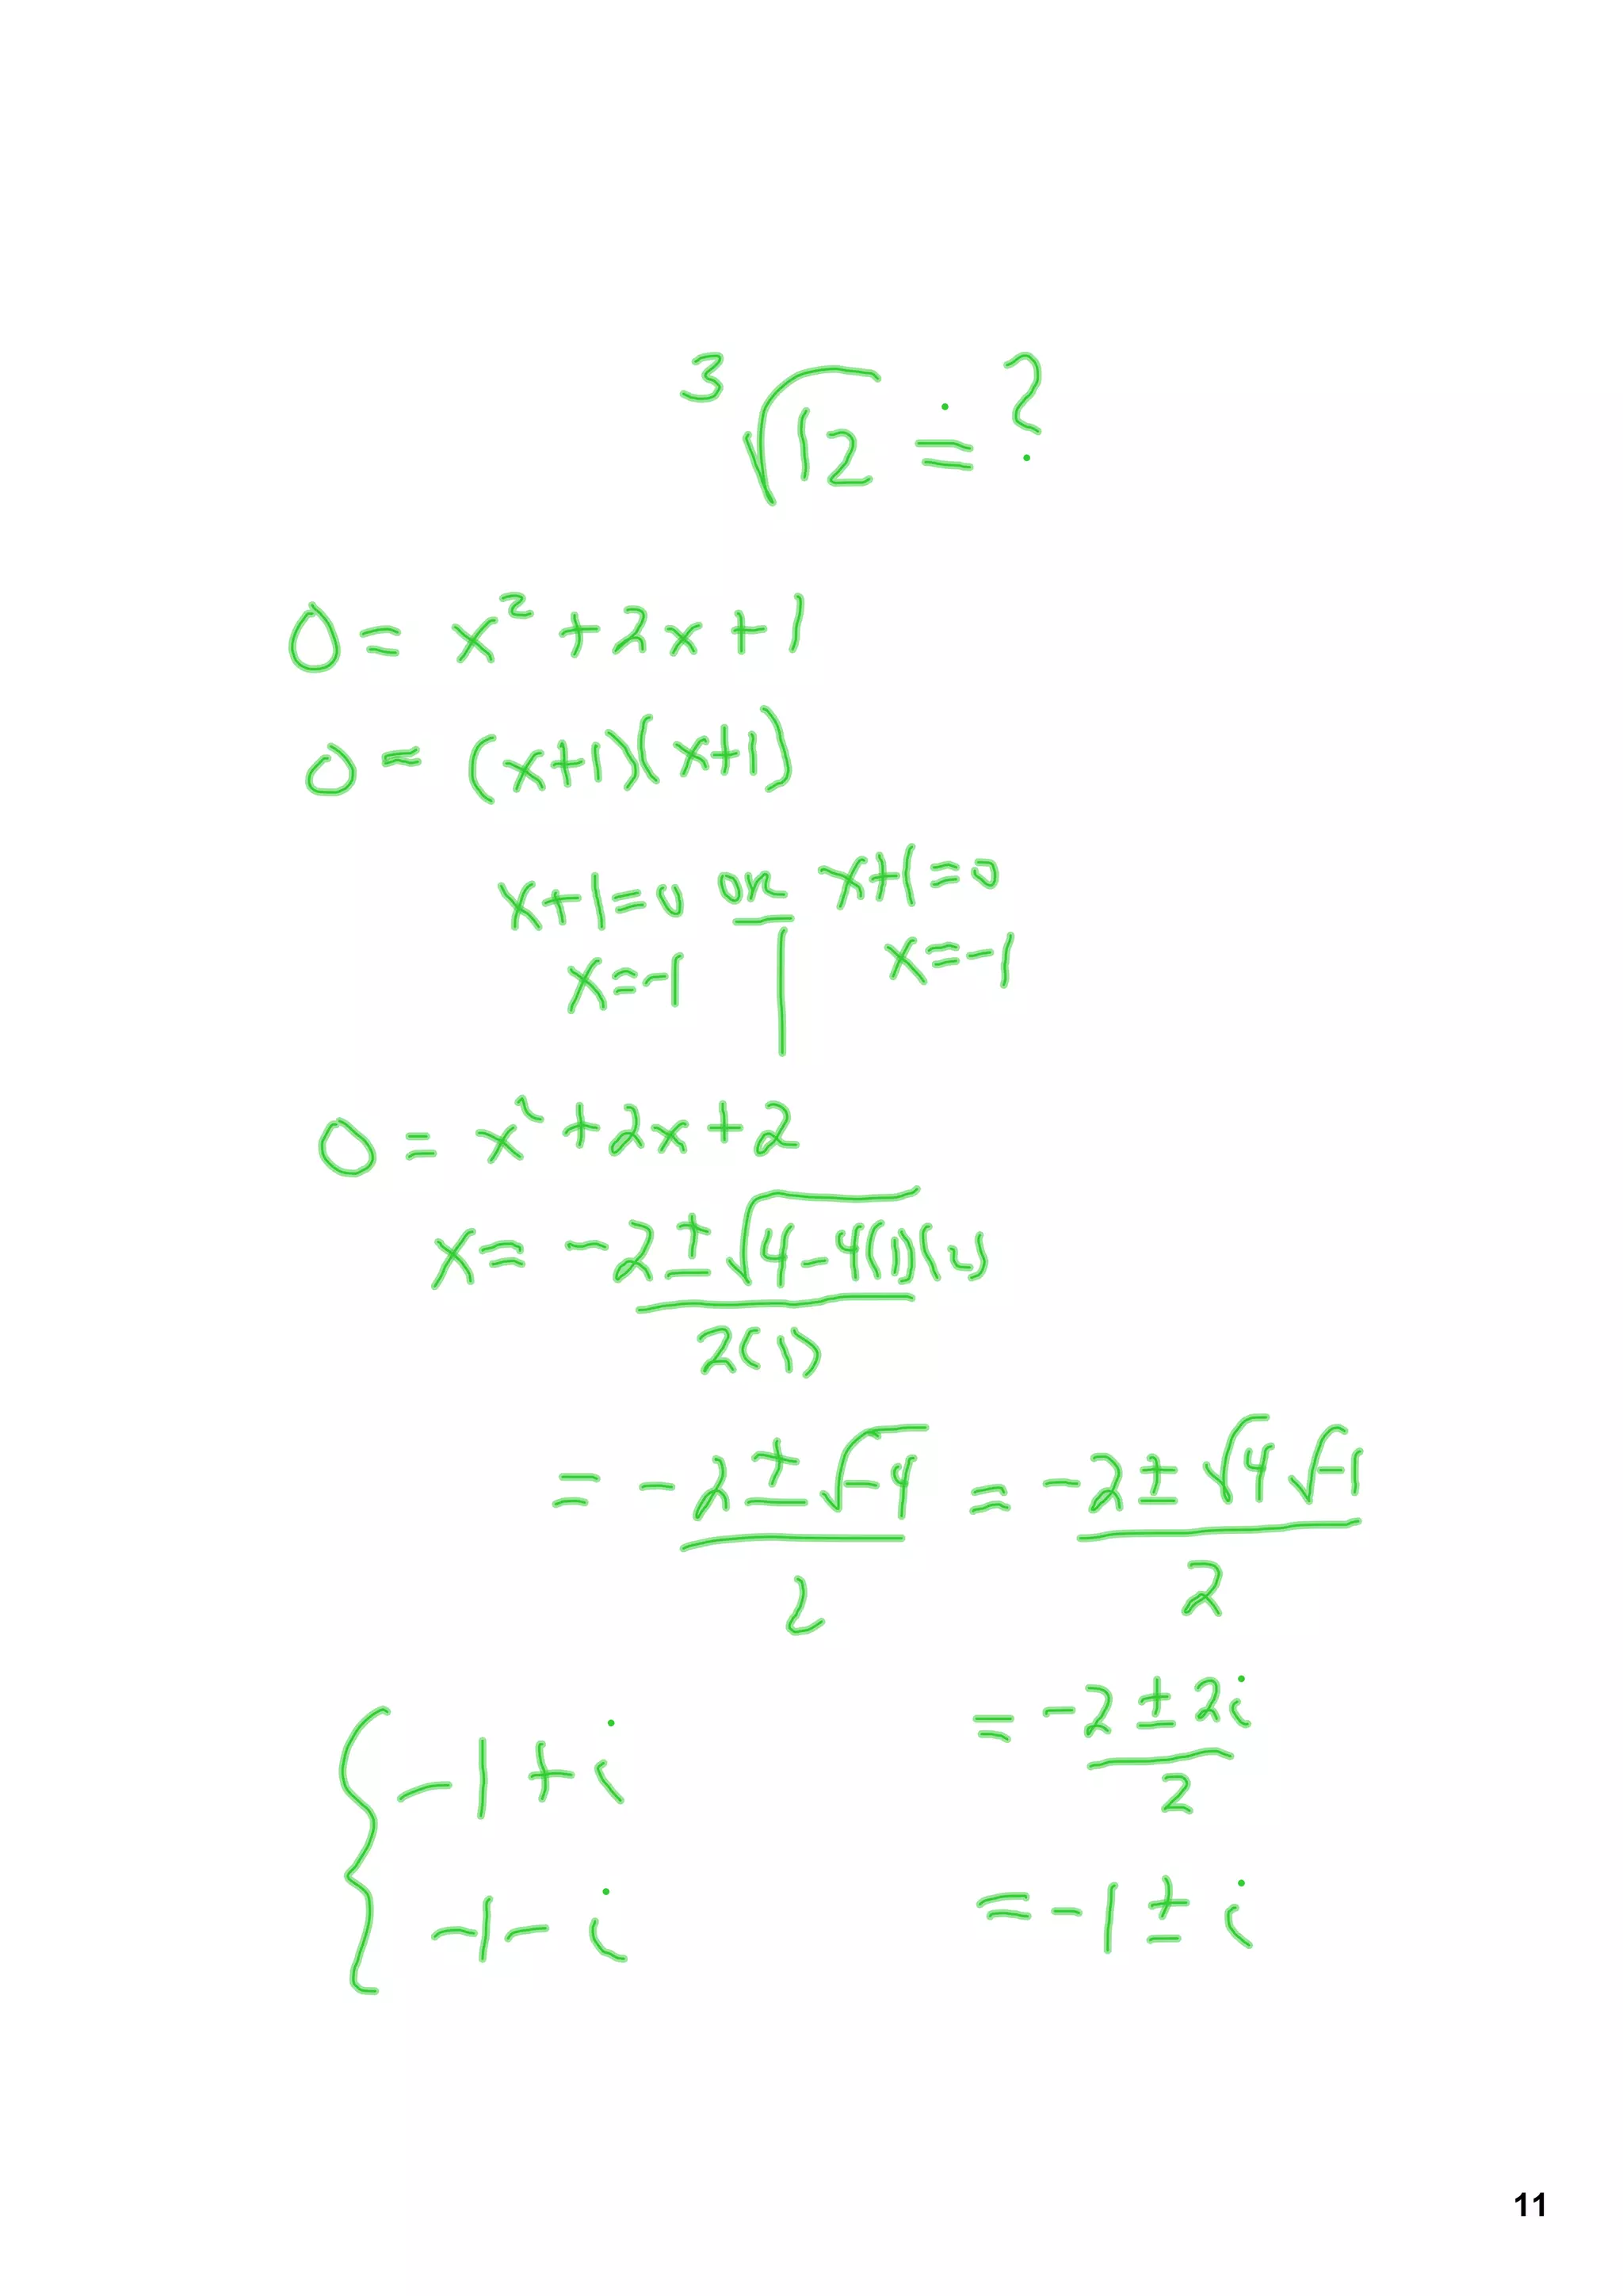 ³√12 ≐ ?
0 = x² + 2x + 1
0 = (x+1)(x+1)
x+1=0 or x+1=0
x=-1 | x=-1
0 = x² + 2x + 2
x = (-2 ± √(4-4(1)(2)))/2(1)
= (-2 ± √-4)/2 = (-2 ± √4 √-1)/2
= (-2 ± 2i)/2
{ -1 + i
= -1 ± i
-1 - i
11